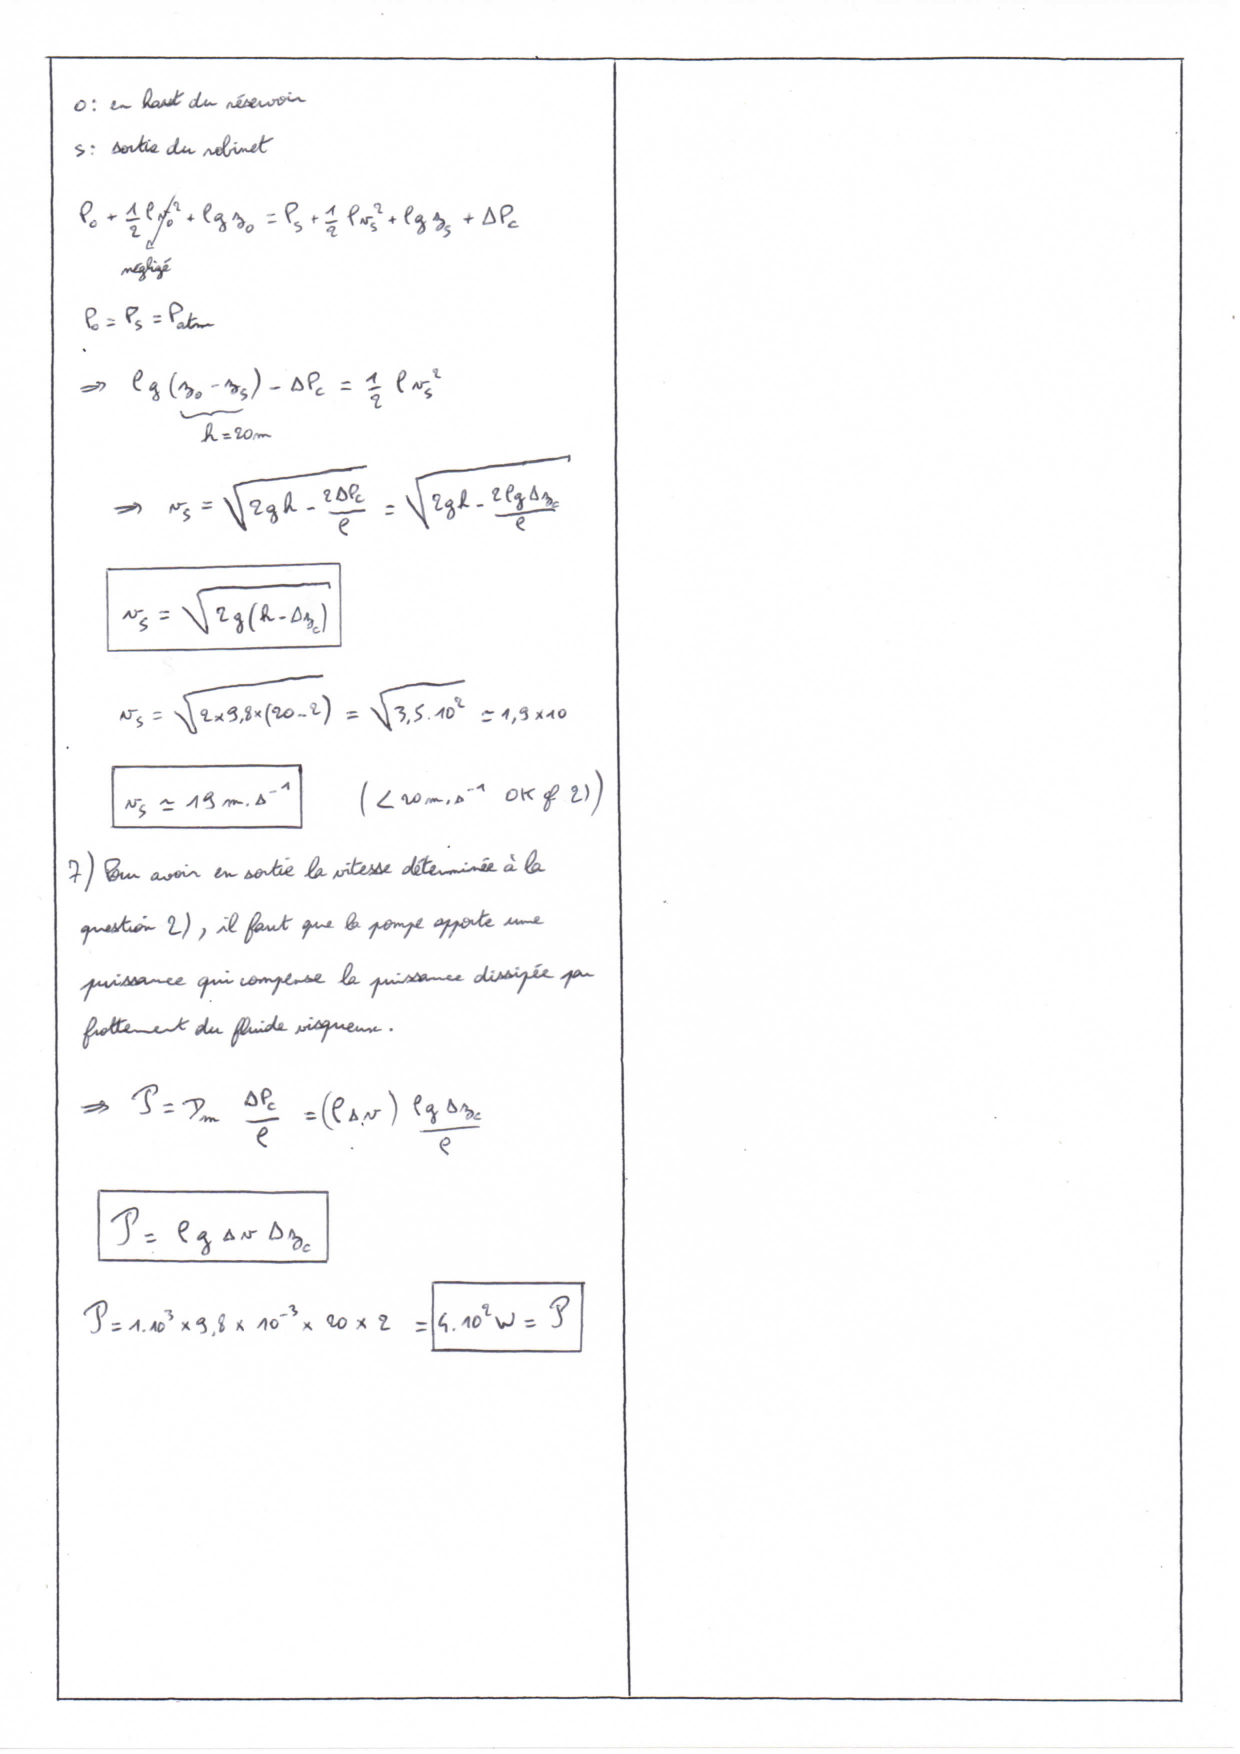 0 : en haut du réservoir
s : sortie du robinet
P₀ + 1/2 ρv₀² + ρg z₀ = Pₛ + 1/2 ρvₛ² + ρg zₛ + ΔP_c
négligé
P₀ = Pₛ = P_atm
⇒ ρg (z₀ - zₛ) - ΔP_c = 1/2 ρvₛ²
h = 20m
⇒ vₛ = √(2gh - 2ΔP_c/ρ) = √(2gh - 2ρgΔz_c/ρ)
vₛ = √(2g(h - Δz_c))
vₛ = √(2×9,8×(20-2)) = √(3,5.10²) ≃ 1,9×10
vₛ ≃ 19 m.s⁻¹ (< 20 m.s⁻¹ OK cf 2))
7) Pour avoir en sortie la vitesse déterminée à la
question 2), il faut que la pompe apporte une
puissance qui compense la puissance dissipée par
frottement du fluide visqueux.
⇒ P = D_m ΔP_c/ρ = (ρsv) ρgΔz_c/ρ
P = ρg sv Δz_c
P = 1.10³ × 9,8 × 10⁻³ × 20 × 2 = 4.10² W = P